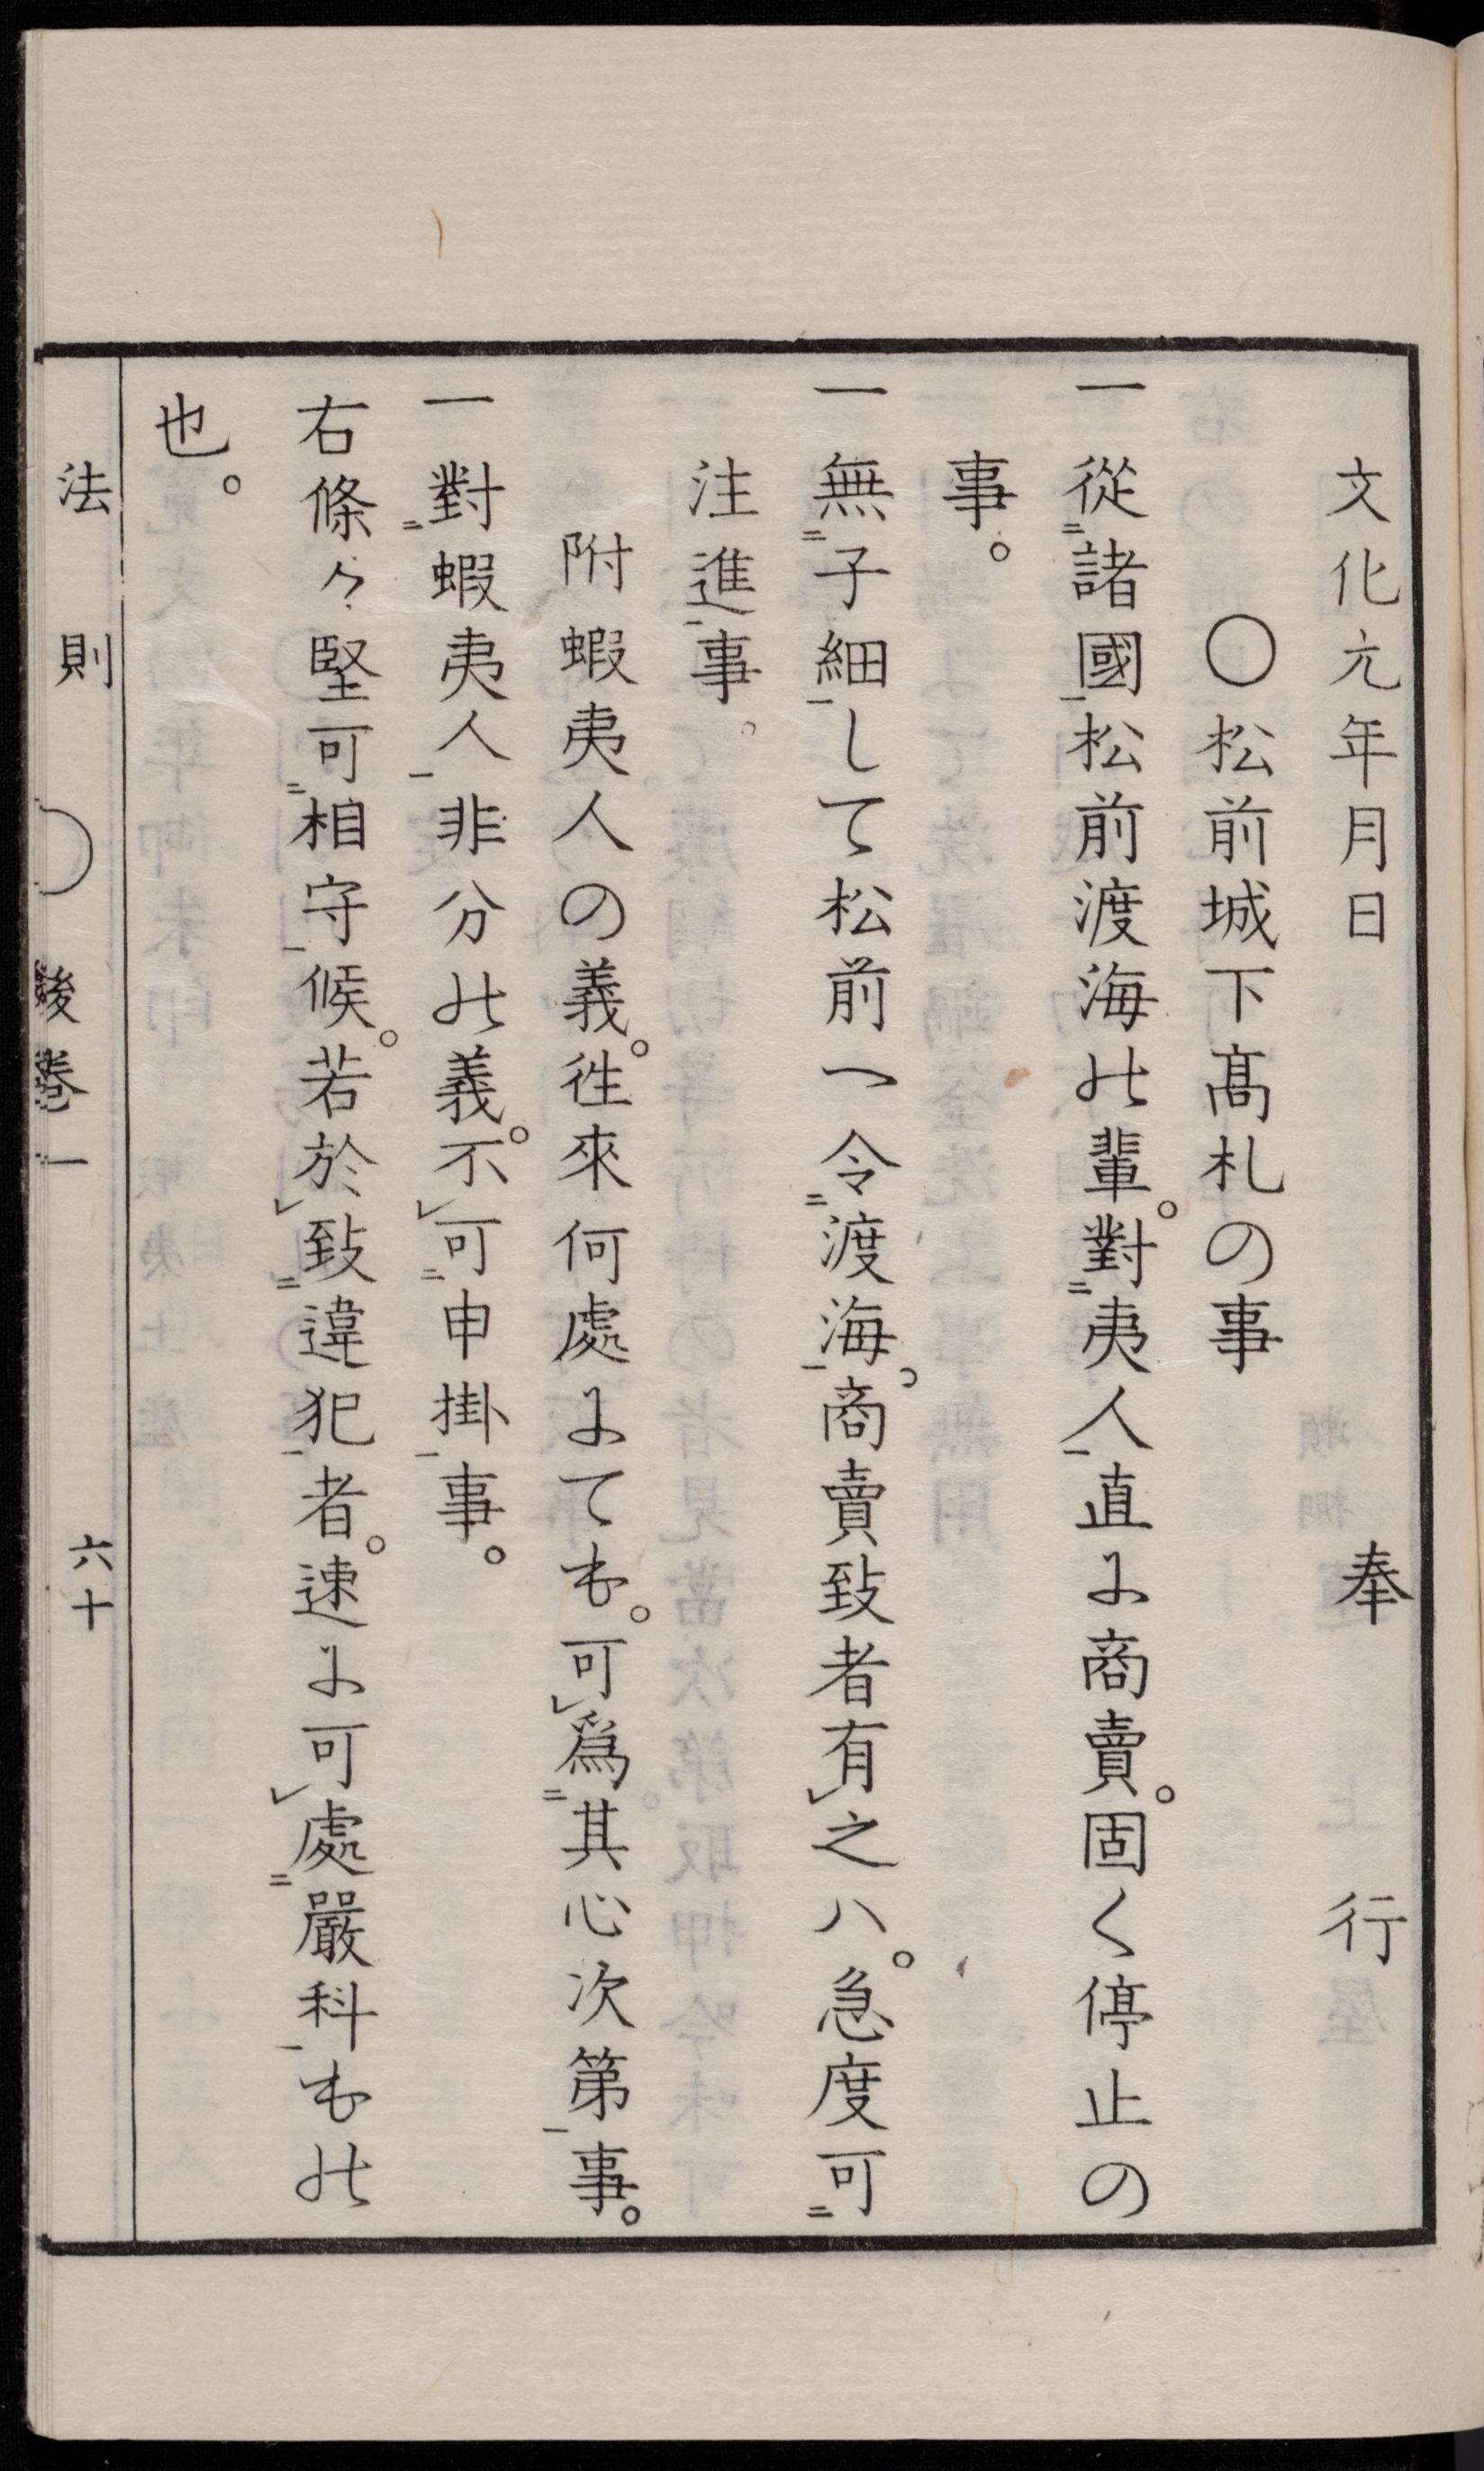 文化元年月日　奉行
〇松前城下髙札の事
一從㆓諸國㆒松前渡海の輩。對㆓夷人㆒直に商賣。固く停止の
事。
一無㆓子細㆒して松前へ令㆓渡海㆒。商賣致者有㆑之ハ。急度可㆓
注進㆒事。
附蝦夷人の義。徃來何處にても。可㆑爲㆓其心次第㆒事。
一對㆓蝦夷人㆒非分の義。不㆑可㆓申掛㆒事。
右條々堅可㆓相守㆒候。若於㆑致㆓違犯㆒者。速に可㆑處㆓嚴科㆒もの
也。
法則　〇　後巻一　六十